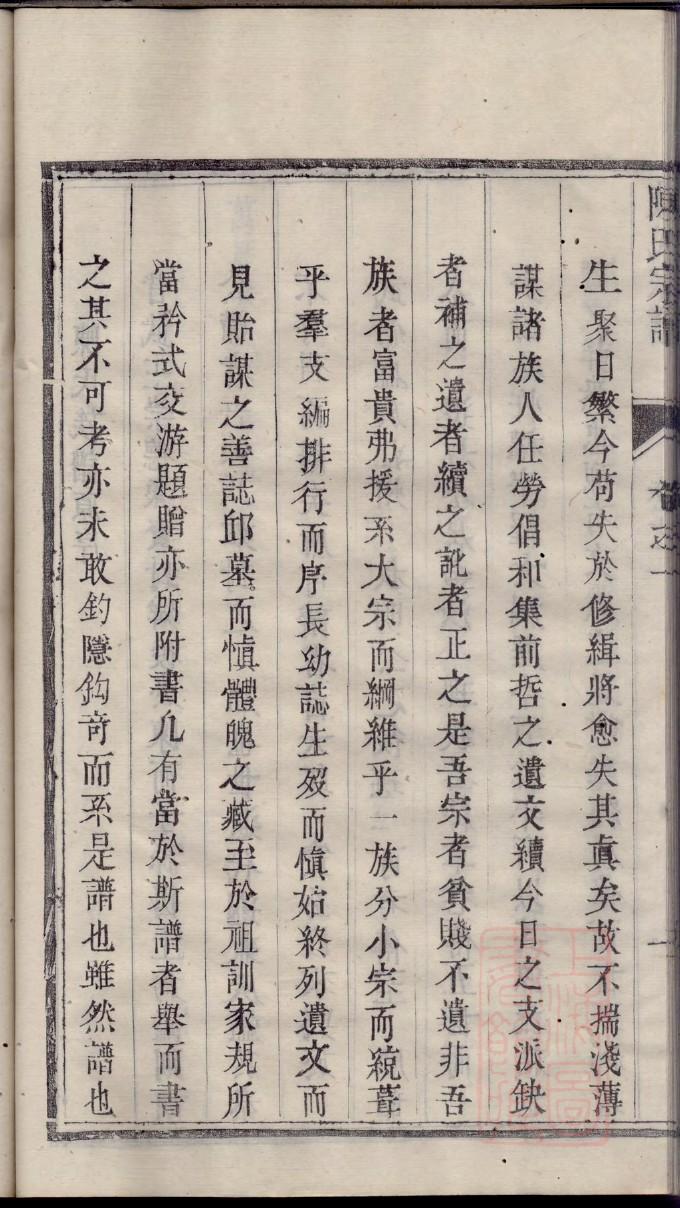 陳氏宗譜
卷之一
生聚日繁今苟失於修緝將愈失其眞矣故不揣淺薄
謀諸族人任勞倡和集前哲之遺文續今日之支派缺
者補之遺者續之訛者正之是吾宗者貧賤不遺非吾
族者富貴弗援系大宗而綱維乎一族分小宗而統葺
乎羣支編排行而序長幼誌生歿而愼始終列遺文而
見貽謀之善誌邱墓而愼體魄之藏至於祖訓家規所
當矜式交游題贈亦所附書凢有當於斯譜者舉而書
之其不可考亦未敢釣隱鈎竒而系是譜也雖然譜也